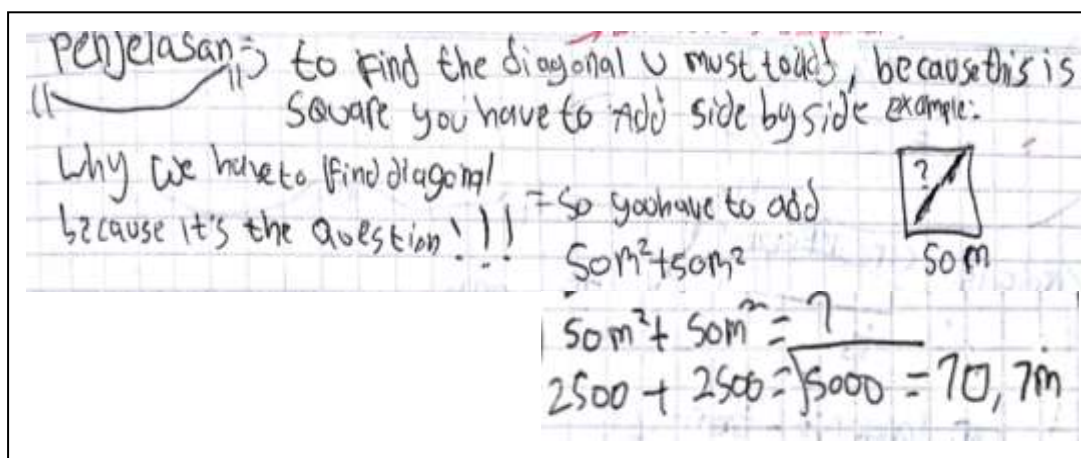 Penjelasan => to find the diagonal u must to add, because this is
square you have to Add side by side example:
Why we have to find diagonal
because it's the question!!!
= so you have to add
50m²+50m²
?
50 m
50m²+ 50m² = ?
2500 + 2500 = √5000 = 70,7m